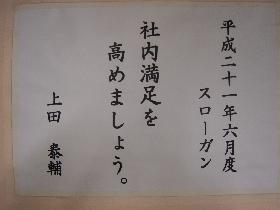 平成二十一年六月度
スローガン
社内満足を
高めましょう。
上田 泰輔